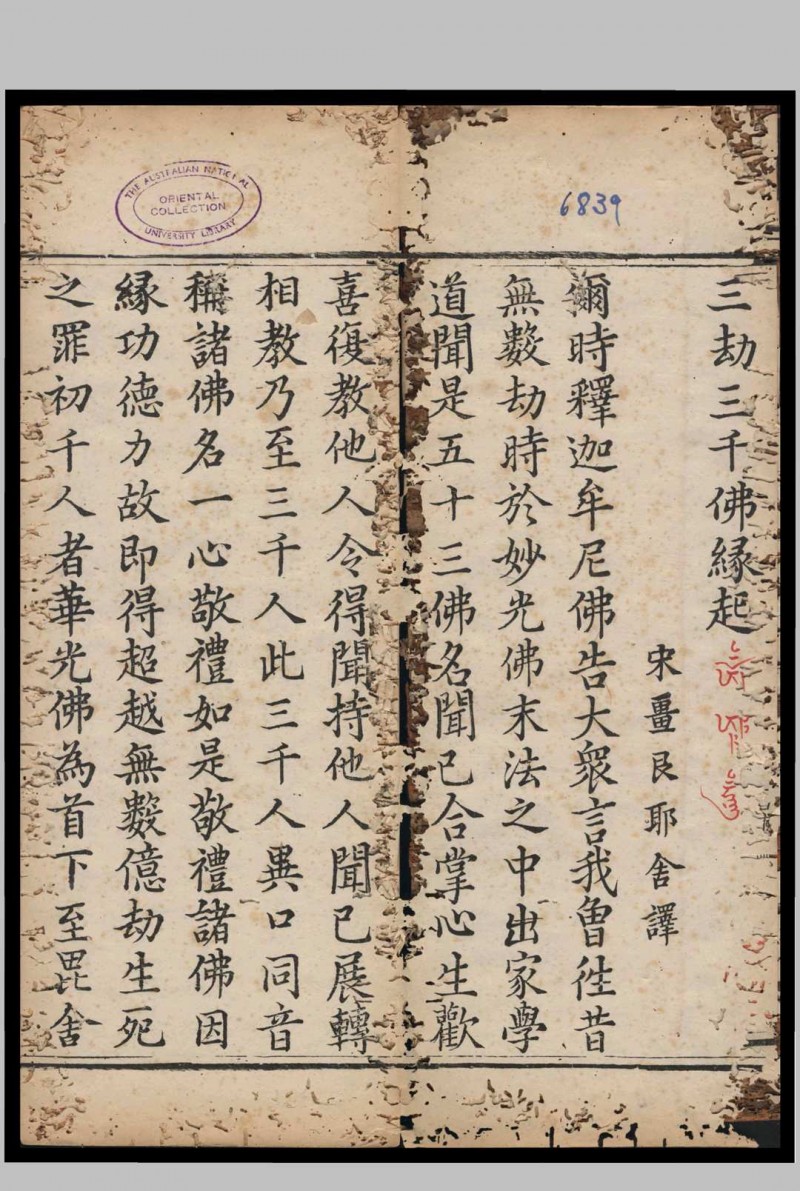 THE AUSTRALIAN NATIONAL
ORIENTAL
COLLECTION
UNIVERSITY LIBRARY
6839
三劫三千佛緣起
宋畺良耶舍譯
爾時釋迦牟尼佛告大衆言我曾徃昔
無數劫時於妙光佛末法之中出家學
道聞是五十三佛名聞已合掌心生歡
喜復教他人令得聞持他人聞已展轉
相教乃至三千人此三千人異口同音
稱諸佛名一心敬禮如是敬禮諸佛因
緣功德力故即得超越無數億劫生死
之罪初千人者華光佛為首下至毘舍